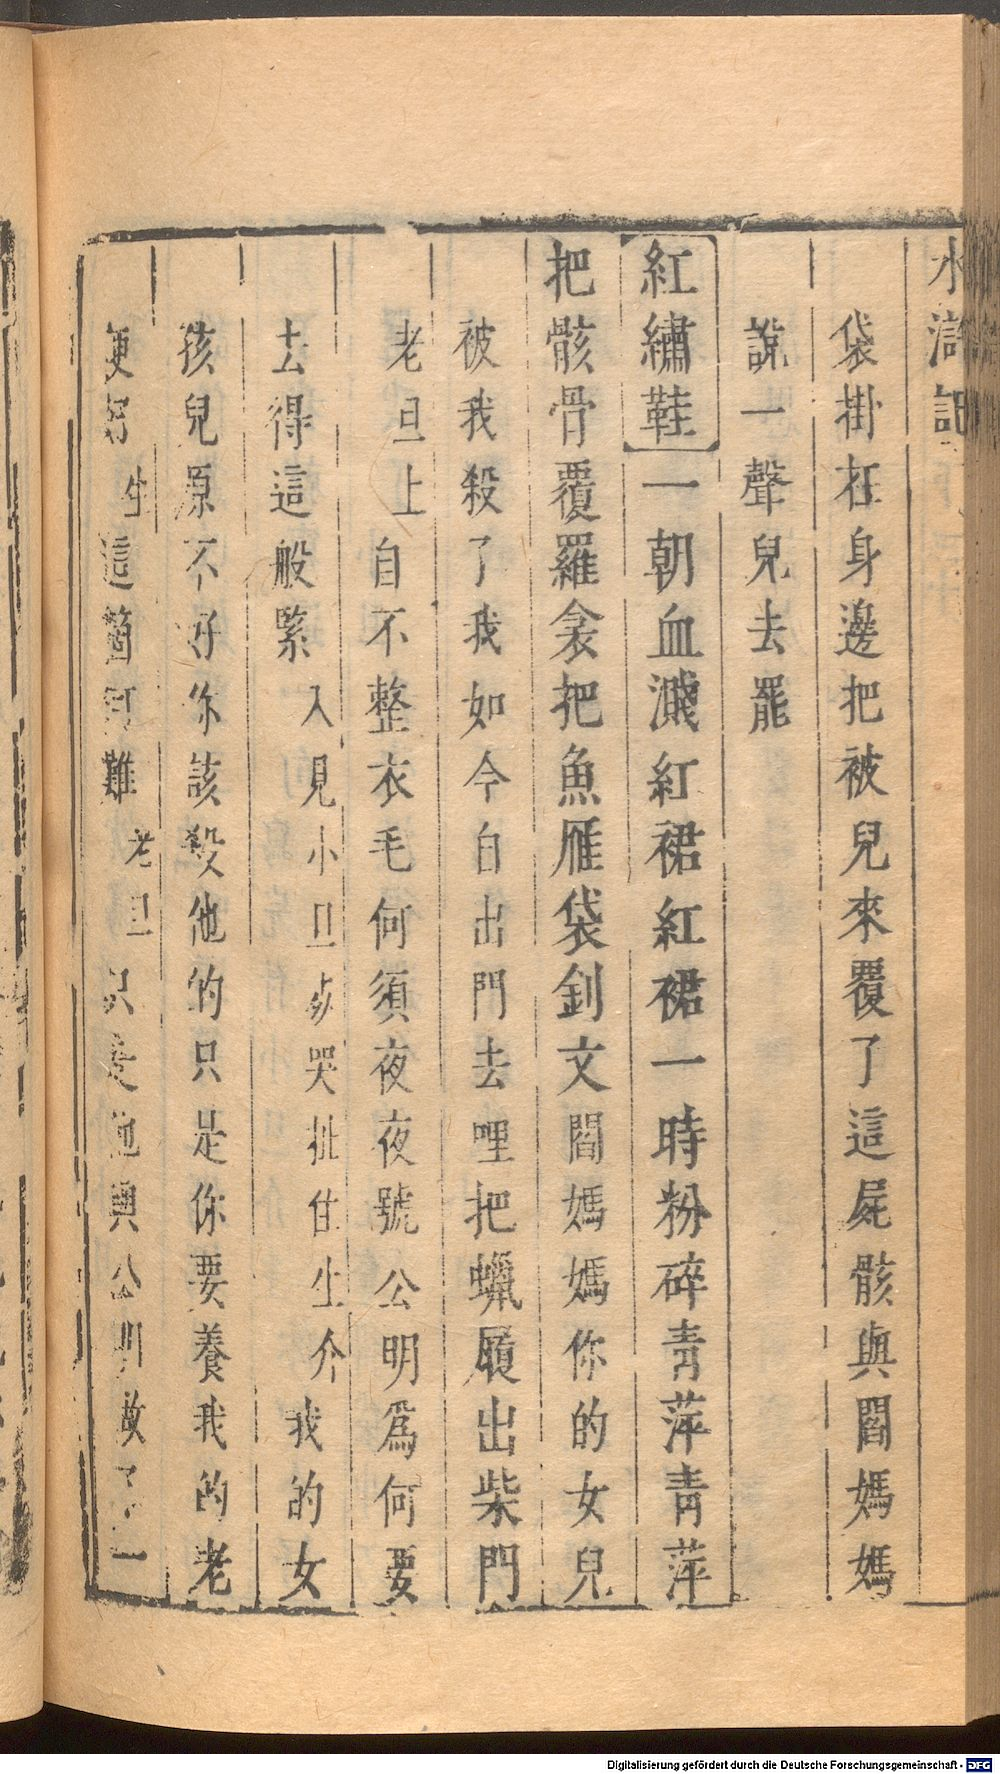 水滸記
袋掛在身邊把被兒來覆了這屍骸與閻媽媽
說一聲兒去罷
紅繡鞋一朝血濺紅裙紅裙一時粉碎青萍青萍
把骸骨覆羅衾把魚雁袋釗文閻媽媽你的女兒
被我殺了我如今自出門去哩把蠟屐出柴門
老旦上自不整衣毛何須夜夜號公明爲何要
去得這般緊入見小旦屍哭扯住生介我的女
孩兒原不好你該殺他的只是你要養我的老
便好生這箇何難老旦只是他與公明救了一
Digitalisierung gefördert durch die Deutsche Forschungsgemeinschaft - DFG